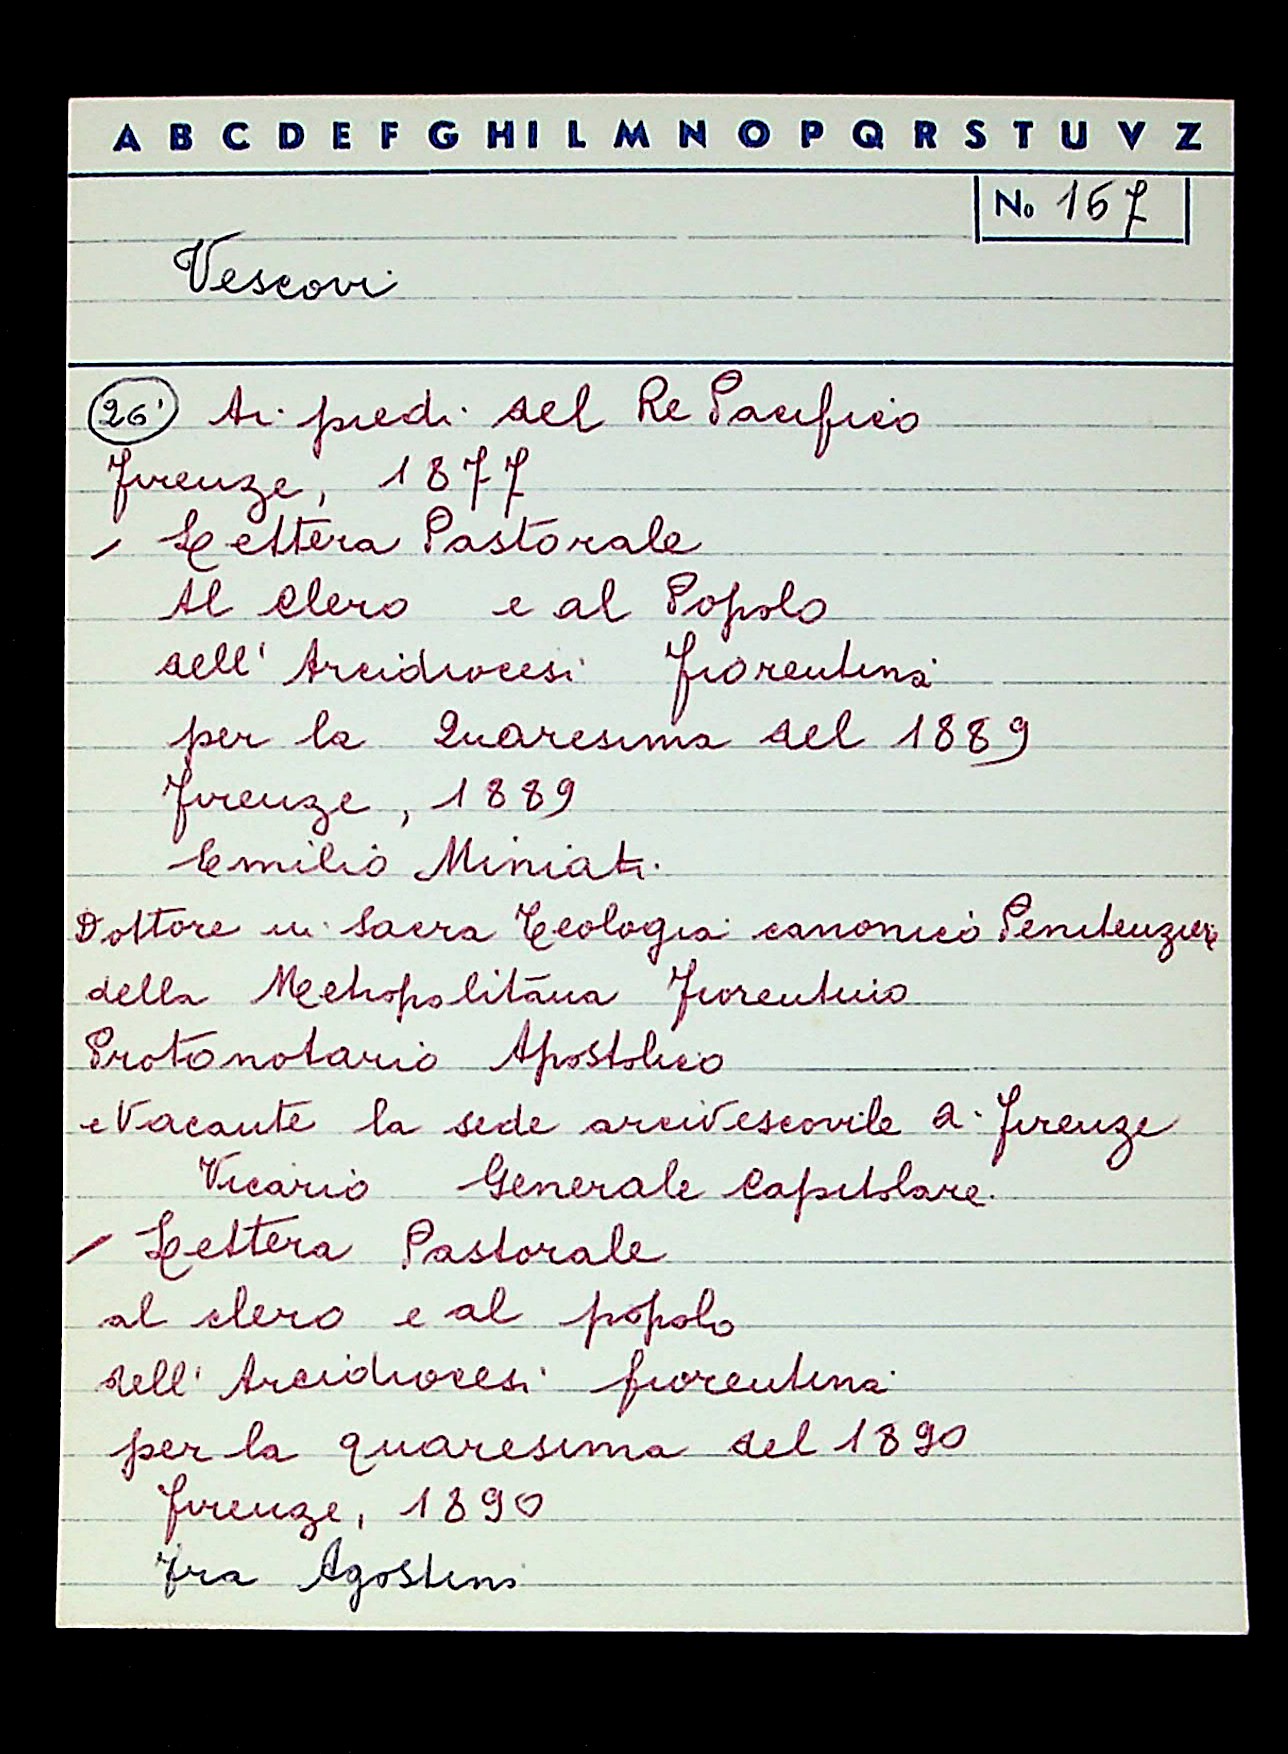 A B C D E F G H I L M N O P Q R S T U V Z
No 167
Vescovi
26' Ai piedi del Re Pacifico
Firenze, 1877
- Lettera Pastorale
Al Clero e al Popolo
dell' Arcidiocesi Fiorentina
per la Quaresima del 1889
Firenze, 1889
Emilio Miniati
Dottore in Sacra Teologia canonico Penitenziere
della Metropolitana Fiorentino
Protonotario Apostolico
e Vacante la sede arcivescovile di Firenze
Vicario Generale Capitolare.
- Lettera Pastorale
al clero e al popolo
dell' Arcidiocesi fiorentina
per la quaresima del 1890
Firenze, 1890
Fra Agostino